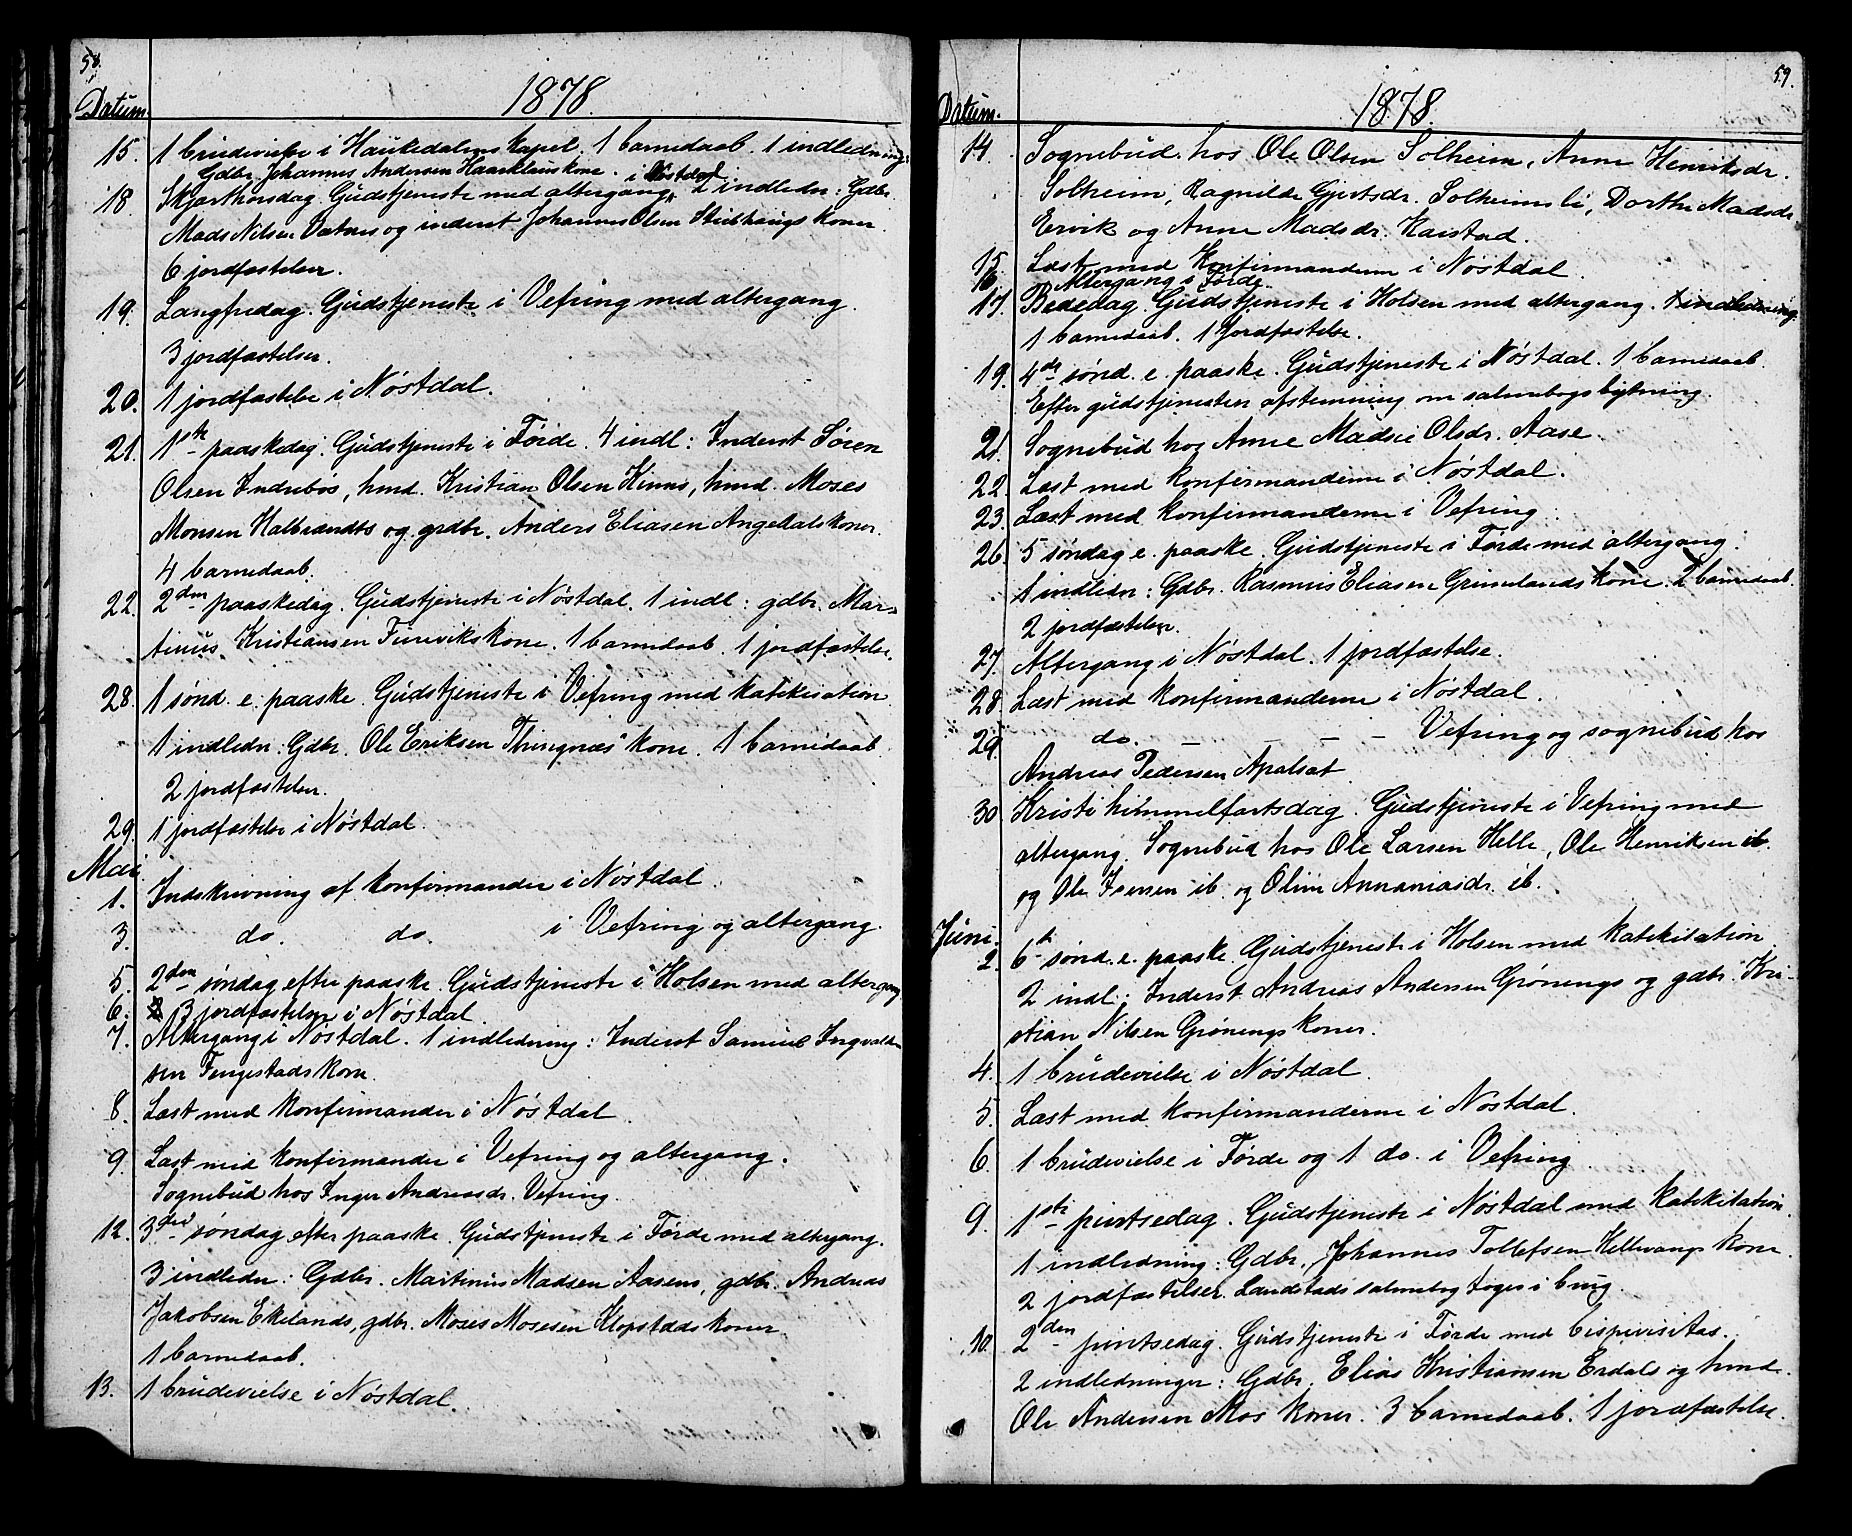 58.
Datum.
1878.
15. 1 brudevielse i Haukedalens kapel. 1 barnedaab. 1 indledning:
Gdbr. Johannes Andersen Haarklaus kone.
i Nöstdal
18. Skjærthorsdag. Gudstjeneste med altergang. 2 indledn: Gdbr.
Mads Nilsen Vætnes og inderst Johannes Olsen Stubhaugs koner.
6 jordfæstelser.
19. Langfredag. Gudstjeneste i Vefring med altergang.
3 jordfæstelser.
20. 1 jordfæstelse i Nöstdal.
21. 1ste paaskedag. Gudstjeneste i Förde. 4 indl: Inderst Sören
Olsen Indrebös, hmd. Kristian Olsen Kinns, hmd. Moses
Monsen Halbrændts og grdbr. Anders Eliasen Angedals koner.
4 barnedaab.
22. 2den paaskedag. Gudstjeneste i Nöstdal. 1 indl: gdbr. Mar-
tinus Kristiansen Furevikskone. 1 barnedaab. 1 jordfæstelse.
28. 1 sønd. e. paaske. Gudstjeneste i Vefring med katekisation
1 indledn: Gdbr. Ole Eriksen kone. 1 barnedaab
2 jordfæstelser.
29. 1 jordfæstelse i Nöstdal.
Mai
1. Indskrivning af konfirmander i Nöstdal.
3. do. do. i Vefring og altergang.
5. 2den søndag efter paaske. Gudstjeneste i Holsen med altergang
6. 3 jordfæstelser i Nöstdal
7. Altergang i Nöstdal. 1 indledning: Inderst Samuel Ingvald-
sen Fengestads kone.
8. Læst med konfirmander i Nöstdal.
9. Læst med konfirmander i Vefring og altergang.
Sognebud hos Inger Andreasdr. Vefring.
12. 3die søndag efter paaske. Gudstjeneste i Förde med altergang.
3 indledn: Gdbr. Martinus Madsen Aasens, gdbr. Andreas
Jakobsen Ekelands, gdbr. Moses Mosesen Klopstads koner
1 barnedaab.
13. 1 brudevielse i Nöstdal.
59.
Datum.
1878.
14. Sognebud hos Ole Olsen Solheim, Anne Henriksdr.
Solheim, Ragnilde Gjertsdr. Solheimsli, Dorthe Madsdr.
Ervik og Anne Madsdr. Karstad.
15. Læst med konfirmanderne i Nöstdal.
16. Altergang i Förde.
17. Bededag. Gudstjeneste i Holsen med altergang. 1 indledning.
1 barnedaab. 1 jordfæstelse.
19. 4de sønd. e. paaske. Gudstjeneste i Nöstdal. 1 barnedaab.
Efter gudstjenesten afstemning om salmebogsbytning.
21. Sognebud hos Anne Madsie Olsdr. Aase.
22. Læst med konfirmanderne i Nöstdal.
23. Læst med konfirmanderne i Vefring.
26. 5 søndag e. paaske. Gudstjeneste i Förde med altergang.
1 indledn: Gdbr. Rasmus Eliasen Grimelands kone. 2 barnedaab.
2 jordfæstelser.
27. Altergang i Nöstdal. 1 jordfæstelse.
28. Læst med konfirmanderne i Nöstdal.
29. do. — — — Vefring og sognebud hos
Andreas Pedersen Apalsæt.
30. Kristi himmelfartsdag. Gudstjeneste i Vefring med
altergang. Sognebud hos Ole Larsen Helle, Ole Henriksen ib.
og Ole Iversen ib. og Oline Annaniasdr. ib.
Juni.
2. 6te sønd. e. paaske. Gudstjeneste i Holsen med katekisation
2 indl: Inderst Andreas Andersen Grönengs og gdbr. Kri-
stian Nilsen Grönengs koner.
4. 1 brudevielse i Nöstdal.
5. Læst med konfirmanderne i Nöstdal.
6. 1 brudevielse i Förde og 1 do. i Vefring.
9. 1ste pintsedag. Gudstjeneste i Nöstdal med katekisation.
1 indledning: Gdbr. Johannes Tollefsen Hellevangs kone.
2 jordfæstelser. Landstads salmebog toges i brug.
10. 2den pintsedag. Gudstjeneste i Förde med bispevisitas.
2 indledninger: Gdbr. Elias Kristiansen Erdals og hmd.
Ole Andersen Mos koner. 3 barnedaab. 1 jordfæstelse.